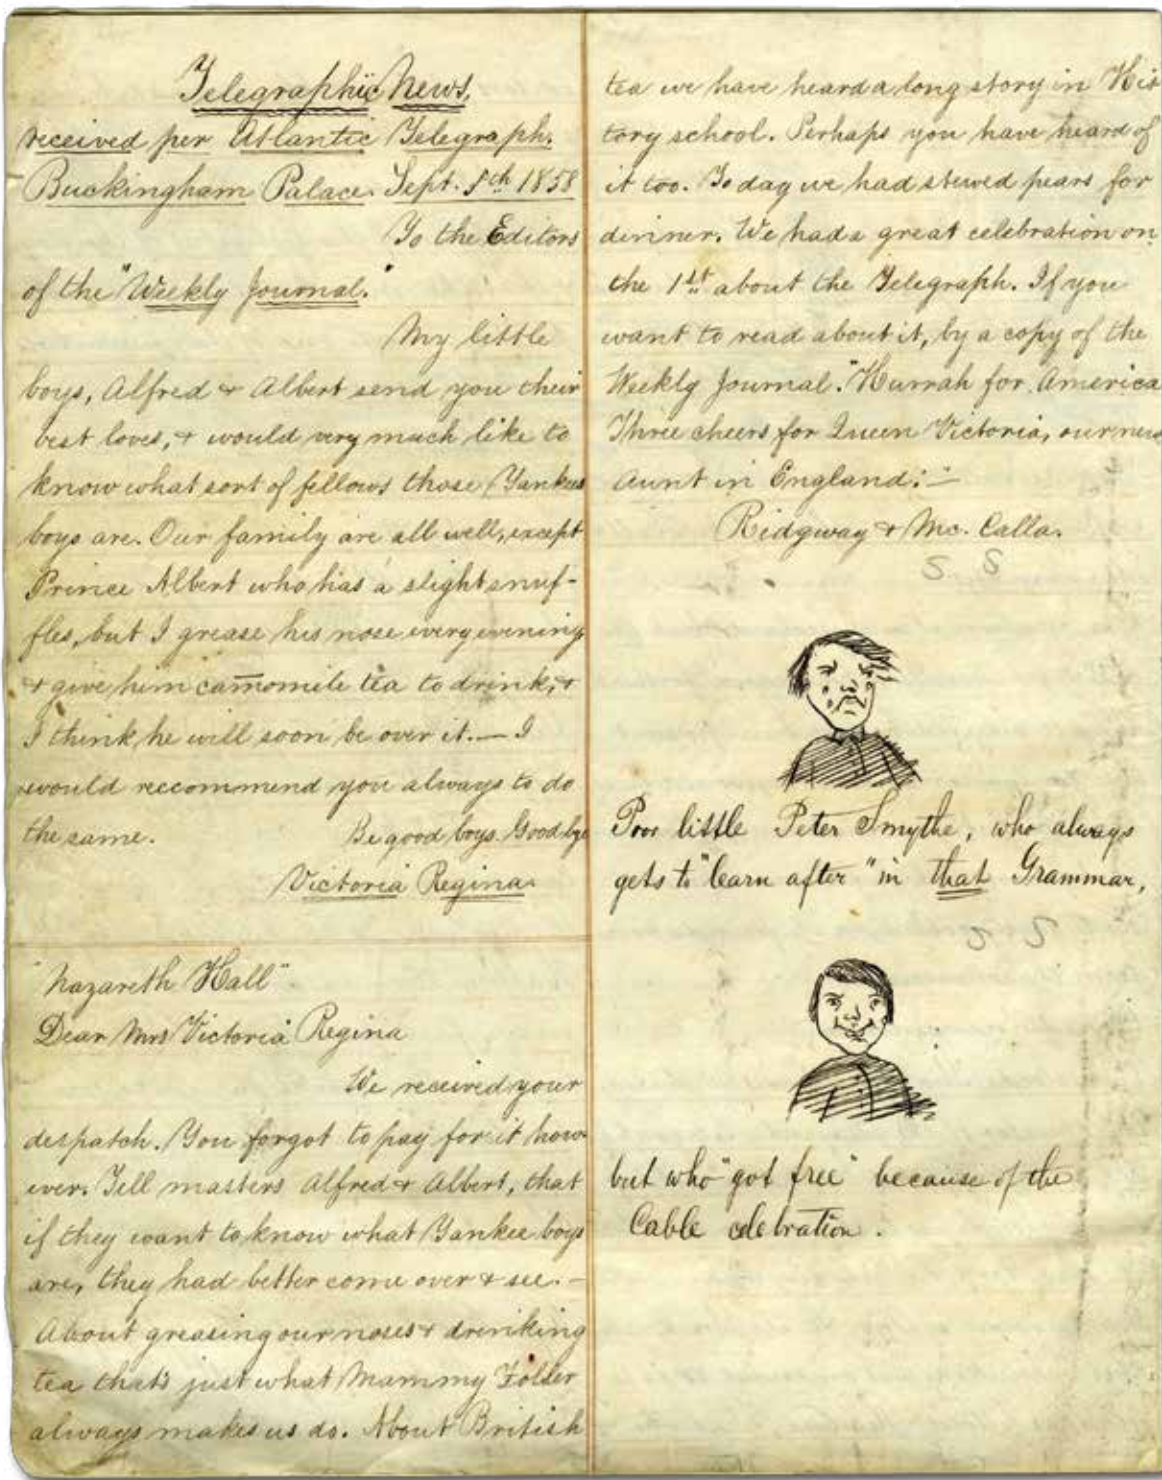 Telegraphic News,
received per Atlantic Telegraph.
Buckingham Palace. Sept. 5th 1858
To the Editors
of the "Weekly Journal."
My little
boys, Alfred & Albert send you their
best loves, & would very much like to
know what sort of fellows those Yankee
boys are. Our family are all well, except
Prince Albert who has a slight snuf-
fles, but I grease his nose every evening
& give him cammomile tea to drink, &
I think he will soon be over it. — I
would reccommend you always to do
the same. Be good boys. Good bye
Victoria Regina.
"Nazareth Hall"
Dear Mrs Victoria Regina
We received your
despatch. You forgot to pay for it how-
ever. Tell masters Alfred & Albert, that
if they want to know what Yankee boys
are, they had better come over & see. –
About greasing our noses & drinking
tea that's just what Mammy
always makes us do. About British
tea we have heard a long story in His
tory school. Perhaps you have heard of
it too. To day we had stewed pears for
dinner. We had a great celebration on
the 1st about the Telegraph. If you
want to read about it, by a copy of the
Weekly Journal." Hurrah for America
Three cheers for Queen Victoria, our new
Aunt in England! –
Ridgway & Mc. Calla.
S S
Poor little Peter Smythe, who always
gets to "learn after" in that Grammar,
S S
but who "got free" because of the
Cable celebration.